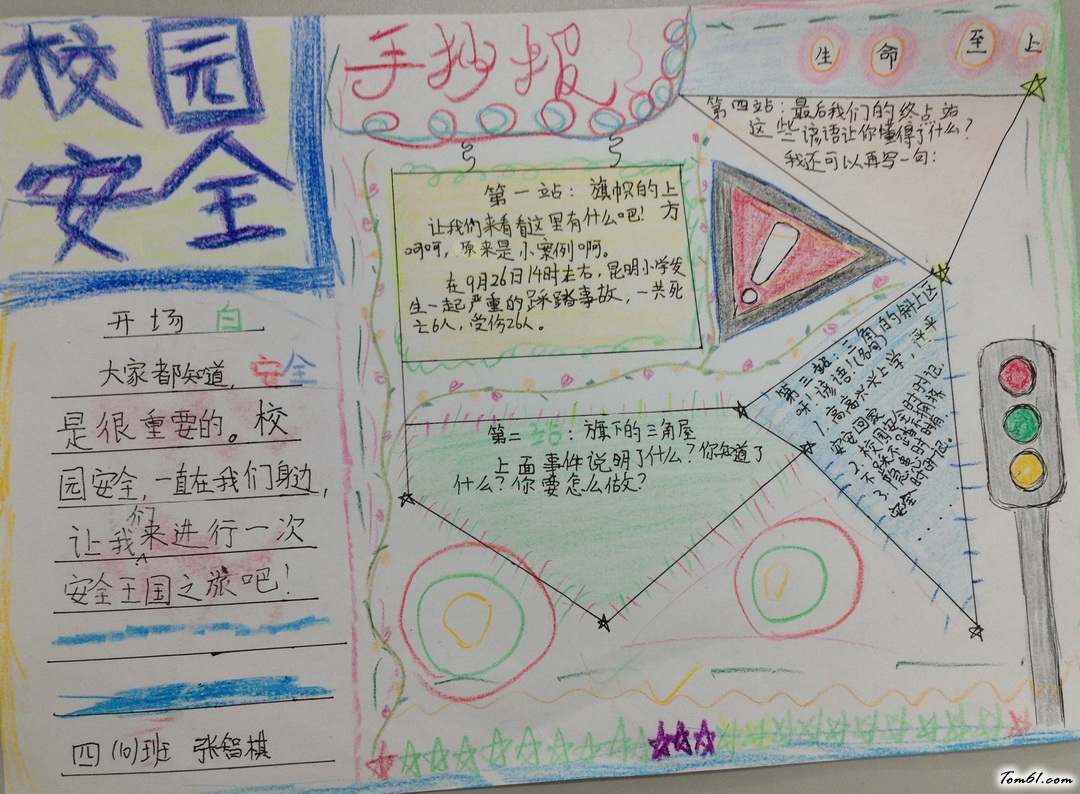 校园
安全
手抄报
生命至上
开场白
大家都知道,安全
是很重要的。校
园安全,一直在我们身边,
让我们来进行一次
安全王国之旅吧!
四(10)班 张智棋
第一站:旗帜的上方
让我们来看看这里有什么吧!
呵呵,原来是小案例啊。
在9月26日14时左右,昆明小学发
生一起严重的踩踏事故,一共死
亡6人,受伤26人。
第二站:旗下的三角屋
上面事件说明了什么?你知道了
什么?你要怎么做?
第三站:三角的斜上区
呀!谚语!(名句)
1.高高兴兴上学,平平
安安回家
2.校园安全时时记,
第四站:最后我们的终点站
这些谚语让你懂得了什么?
我还可以再写一句:
Tom61.com